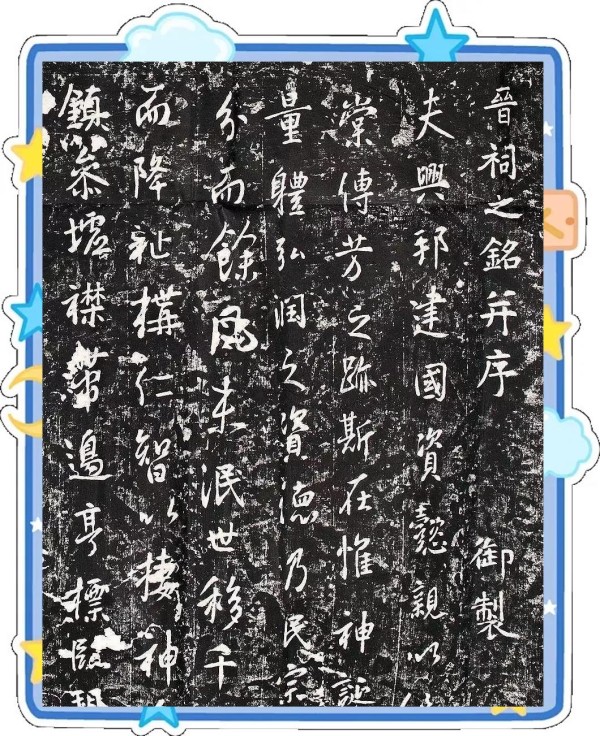 晉祠之銘并序 御製
夫興邦建國資懿親以
棠傳芳之跡斯在惟神誕
量體弘潤之資德乃民宗
分而餘風未泯世移千
而降祉構仁智以棲神
鎮參墟襟帶邊亭標臨朔